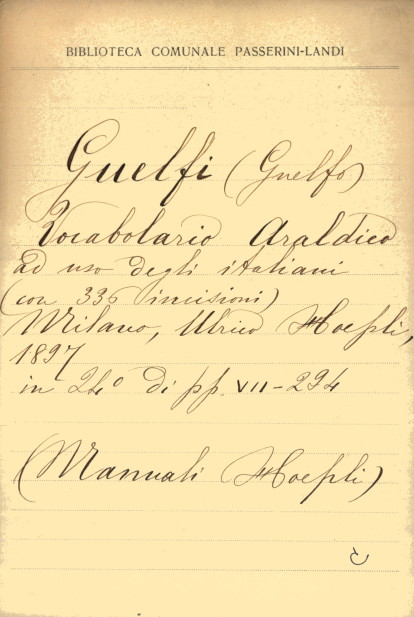 BIBLIOTECA COMUNALE PASSERINI-LANDI
Guelfi (Guelfo)
Vocabolario Araldico
ad uso degli italiani
(con 336 incisioni)
Milano, Ulrico Hoepli,
1897
in 24º di pp. VII-294
(Manuali Hoepli)